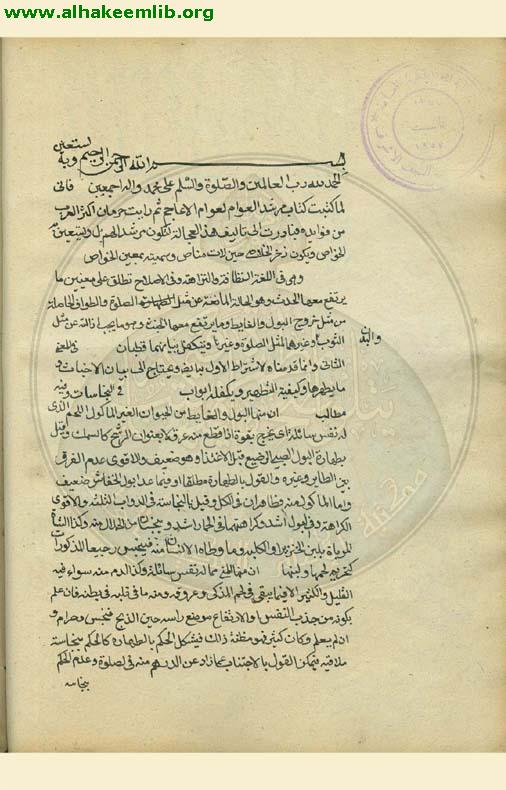 www.alhakeemlib.org
بسم الله الرحمن الرحيم وبه نستعين
الحمد لله رب العالمين والصلوة والسلم على محمد واله اجمعين فانى
لما كتبت كتاب مرشد العوام لعوام الاعاجم ثم رايت حرمان اكثر العرب
من فوايده الى تاليف هذه العجالة لتكون مرشد الهم بل ولينتفع به
الخواص ويكون ذخر الخلاص حين لات مناص وسميته بمعين الخواص
وهى فى اللغة النظافة والنزاهة وفى الاصلاح تطلق على معنيين ما
يرتفع معها الحدث وهو الحالة المانعة عن مثل الصلوة والطواف الحاصلة
من مثل خروج البول والغايط وما يرتفع معها الخبث وهو ما يجب ازالته عن مثل
الثوب
والبدن
وغيرها لمثل الصلوة وغيرها ويتكفل بيانهما قطبان فى
الثانى وانما قدمناه لاشتراط الاول به ويحتاج الى بيان الاخباث و
ما يطهرها وكيفية التطهير ويكفله ابواب فى النجاسات وفيه
مطالب ان منها البول والغايط من الحيوان الغير الماكول اللحم الذى
له نفس سائلة اى يخرج بقوة اذا قطع منه عرق لا بعنوان الرشح كالسمك وقيل
بطهارة البول الصبى الرضيع قبل الاغتذاء وهو ضعيف والاقوى عدم الفرق
بين الطاير وغيره والقول بالطهارة مطلقا او فيما عدا بول الخفاش ضعيف
واما الماكول منه فطاهران فى الكل وقيل بالنجاسة فى الدواب الثلثة والاقوى
الكراهة وفى البول اشد وكراهتهما فى الحمار اشد من الحلال منه وكذا الشاة
المرباة بلبن الخنزير او الكلبة وما وطاه الانسان منه فينجس رجيعا المذكورات
كتحريم لحمها ولبنها ان منها المنى مما له نفس سائلة وكذا الدم منه سواء فيه
القليل والكثير الا فيما يبقى فى لحم المذكى وعروقه ومنه ما فى قلبه فى بطنه فان علم
بكونه من جذب النفس او لارتفاع موضع راسه حين الذبح فنجس وحرام و
ان لم يعلم وكان كثيرا فى مظنة ذلك فيشكل الحكم بالطهارة كالحكم بنجاسة
ملاقيه فيمكن القول بالاجتناب عما زاد عن الدرهم منه فى الصلوة وعدم الحكم
بنجاسة